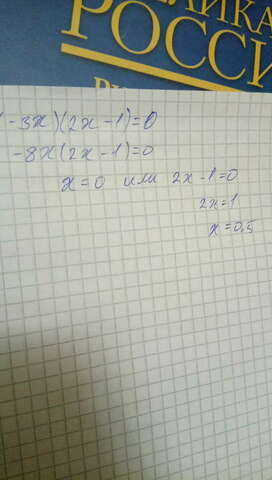 ЛИКА
РОССИ
- 3x)(2x - 1) = 0
-8x(2x - 1) = 0
x = 0 или 2x - 1 = 0
2x = 1
x = 0,5